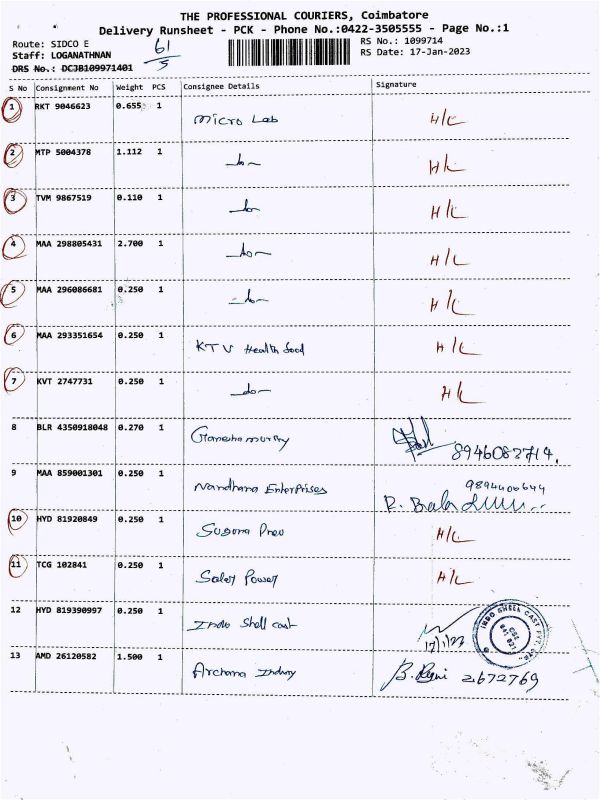 THE PROFESSIONAL COURIERS, Coimbatore
Delivery Runsheet - PCK - Phone No.:0422-3505555 - Page No.:1
Route: SIDCO E
Staff: LOGANATHNAN
DRS No.: DCJB109971401
61/5
RS No.: 1099714
RS Date: 17-Jan-2023
S No Consignment No Weight PCS Consignee Details Signature
1 RKT 9046623 0.655 1 Micro Lab H/L
2 MTP 5004378 1.112 1 -do- H/L
3 TVM 9867519 0.110 1 -do- H/L
4 MAA 298805431 2.700 1 -do- H/L
5 MAA 296086681 0.250 1 -do- H/L
6 MAA 293351654 0.250 1 KTV Health food H/L
7 KVT 2747731 0.250 1 -do- H/L
8 BLR 4350918048 0.270 1 Ganesha murthy 8946082714.
9 MAA 859001301 0.250 1 Nandhana Enterprises 9894400644
R. Bala
10 HYD 81920849 0.250 1 Suguna H/L
11 TCG 102841 0.250 1 Power H/L
12 HYD 819390997 0.250 1 Indo Shell cast 17/1/23
INDO SHELL CAST PVT. LTD.
13 AMD 26120582 1.500 1 Archana 2672769